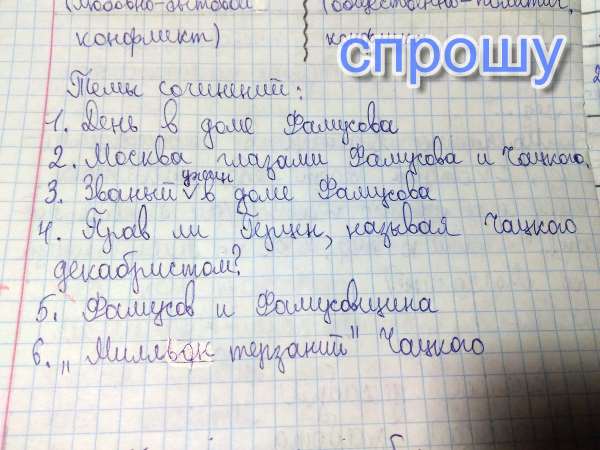 (любовно-бытовой
конфликт)
(общественно-политич.
спрошу
Темы сочинений:
1. День в доме Фамусова
2. Москва глазами Фамусова и Чацкого.
ужин
3. Званый в доме Фамусова
4. Прав ли Герцен, называя Чацкого
декабристом?
5. Фамусов и Фамусовщина
6. "Милльон терзаний" Чацкого